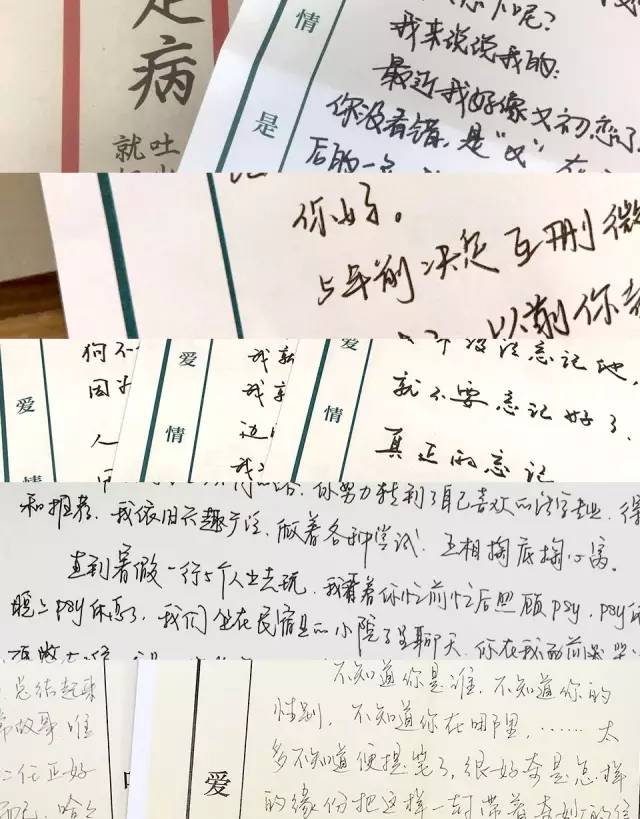 病
吐
就
情
是
我来说说我的:
最近我好像又初恋了,
你没看错,是“又”
后的一
你好。
5年前决定互删微
以前你
狗不
因为
爱
情
人
爱
情
我
我
边
我
爱
情
没法忘记他,
就不要忘记好了。
真正的忘记
你努力转到了自己喜欢的法学专业,得
和推荐,我依旧兴趣广泛,做着各种尝试,互相掏底掏心窝。
直到暑假一行5个人出去玩,我看着你忙前忙后照顾psy,psy
晚上psy休息了,我们坐在民宿的小院子里聊天,你在我面前
总结起来
故事 谁
二任正好
而已,哈哈
爱
不知道你是谁,不知道你的
性别,不知道你在哪里,……太
多不知道便提笔了,很好奇是怎样
的缘份把这样一封带着奇妙的信